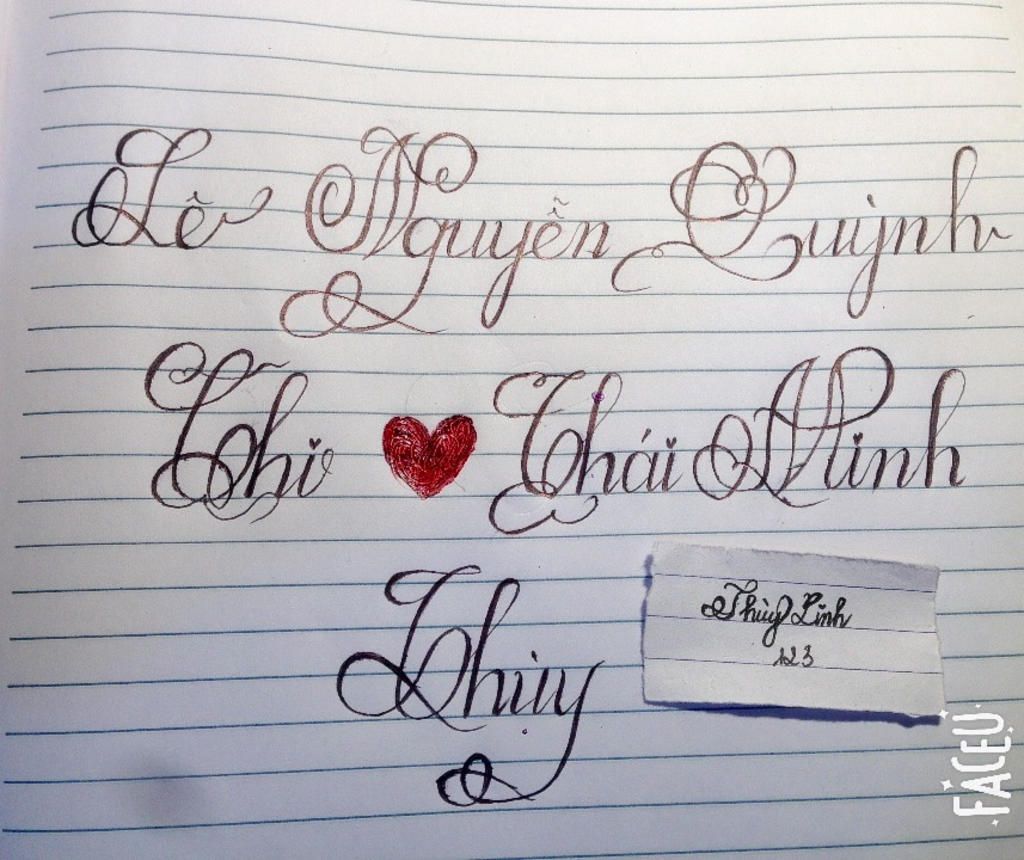 Lê Nguyễn Quỳnh
Thi Thái Minh
Thùy
Thùy Linh
123
FACEU